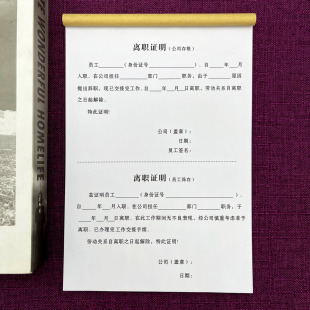 离职证明（公司存根）
员工________（身份证号______________），自____年__月
入职，在公司担任________部门________职务，由于______原因
提出辞职，现已交接完工作，自____年__月__日离职，劳动关系自离职
之日起解除。
特此证明！
公司（盖章）：
日期：
员工签名：
离职证明（员工保存）
兹证明员工________（身份证号______________），
自____年__月入职，在公司担任________部门________职务，于
____年__月__日离职，在此工作期间无不良表现，经公司慎重考虑准予
离职，已办理完工作交接手续。
劳动关系自离职之日起解除，特此证明！
公司（盖章）：
日期：
WONDERFUL HOMELIFE